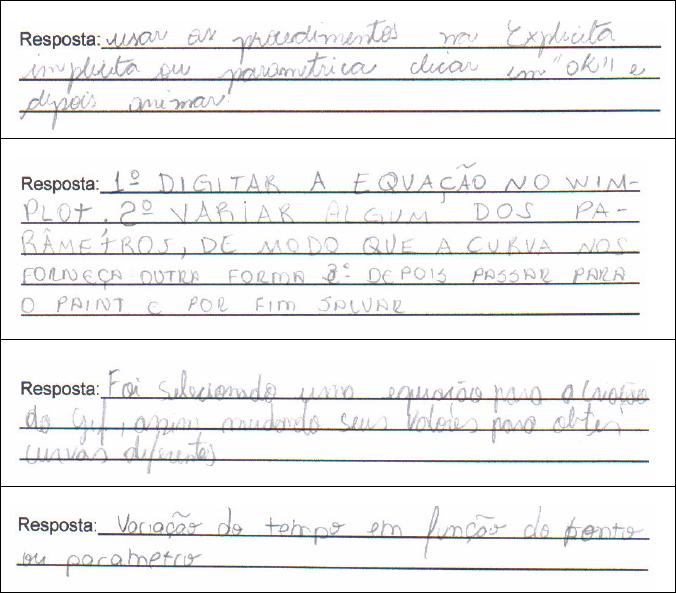 Resposta: usar os procedimentos na Explicita
implicita ou parametrica clicar em "OK" e
depois animar
Resposta: 1º DIGITAR A EQUAÇÃO NO WIM-
PLOT. 2º VARIAR ALGUM DOS PA-
RÂMETROS, DE MODO QUE A CURVA NOS
FORNEÇA OUTRA FORMA 3º DEPOIS PASSAR PARA
O PAINT E POR FIM SALVAR
Resposta: Foi selecionado uma equação para a criação
do Gif, assim mudando seus valores para obter
curvas diferentes
Resposta: Variação do tempo em função do ponto
ou parametro